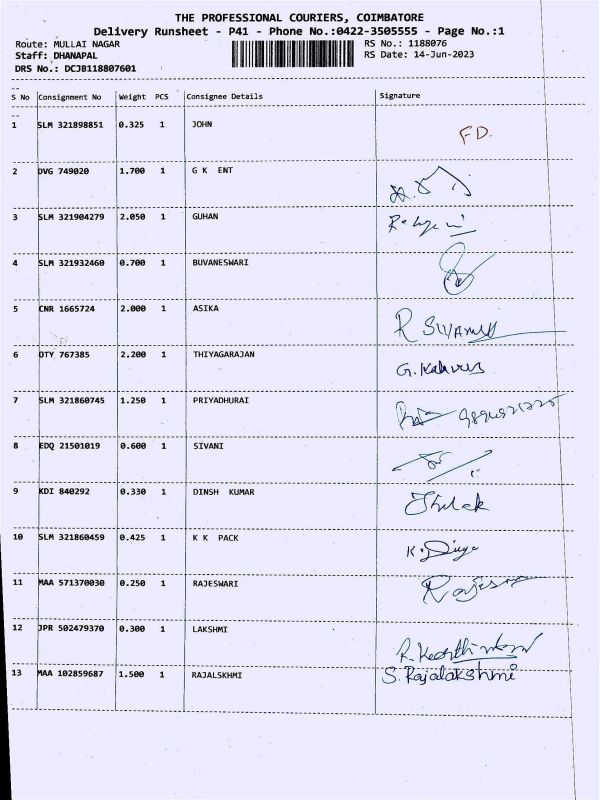 THE PROFESSIONAL COURIERS, COIMBATORE
Delivery Runsheet - P41 - Phone No.:0422-3505555 - Page No.:1
Route: MULLAI NAGAR RS No.: 1188076
Staff: DHANAPAL RS Date: 14-Jun-2023
DRS No.: DCJB118807601
S No Consignment No Weight PCS Consignee Details Signature
1 SLM 321898851 0.325 1 JOHN FD.
2 DVG 749020 1.700 1 G K ENT
3 SLM 321904279 2.050 1 GUHAN
4 SLM 321932460 0.700 1 BUVANESWARI
5 CNR 1665724 2.000 1 ASIKA R
6 OTY 767385 2.200 1 THIYAGARAJAN G.
7 SLM 321860745 1.250 1 PRIYADHURAI
8 EDQ 21501019 0.600 1 SIVANI
9 KDI 840292 0.330 1 DINSH KUMAR
10 SLM 321860459 0.425 1 K K PACK K. Divya
11 MAA 571370030 0.250 1 RAJESWARI
12 JPR 502479370 0.300 1 LAKSHMI
13 MAA 102859687 1.500 1 RAJALSKHMI S. Rajalakshmi